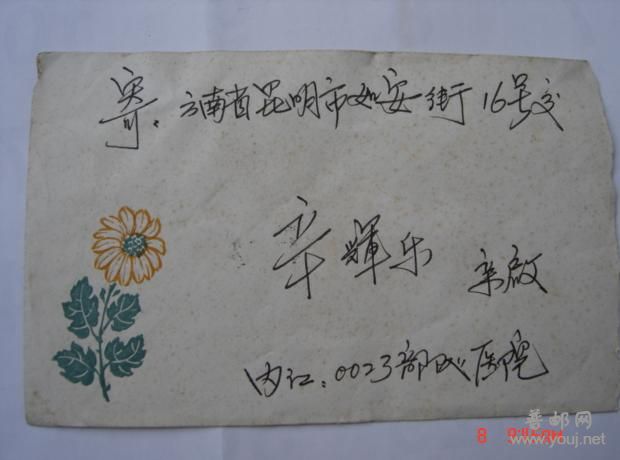 寄：云南省昆明市如安街16号交
辛輝乐 亲啟
内江：0023部队医院
8
普邮网
www.youj.net